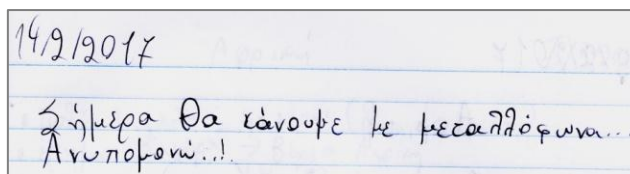 14/2/2017
Σήμερα θα κάνουμε με μεταλλόφωνα...
Ανυπομονώ..!.